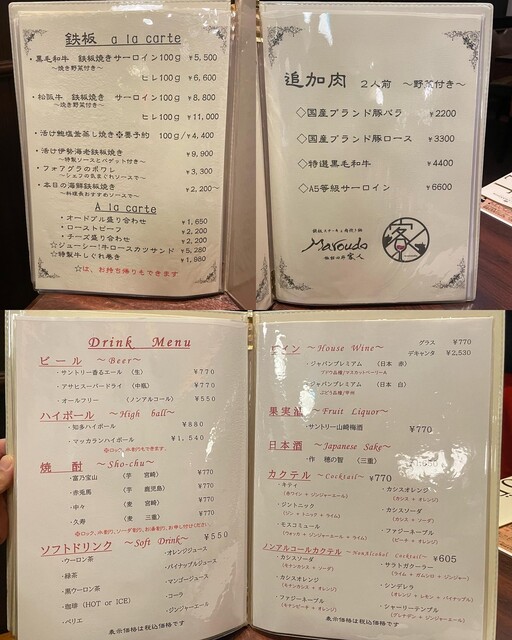 鉄板 a la carte
・黒毛和牛 鉄板焼き サーロイン100g ¥5,500
～焼き野菜付き～
ヒレ100g ¥6,600
・松阪牛 鉄板焼き サーロイン100g ¥8,800
～焼き野菜付き～
ヒレ100g ¥11,000
・活け鮑塩釜蒸し焼き 要予約 100g/¥4,400
・活け伊勢海老鉄板焼き ¥9,900
～特製ソースとバゲット付き～
・フォアグラのポワレ ¥3,300
～シェフの気まぐれソースで～
・本日の海鮮鉄板焼き ¥2,200～
～料理長おすすめソースで～
A la carte
・オードブル盛り合わせ ¥1,650
・ローストビーフ ¥2,200
・チーズ盛り合わせ ¥2,200
☆ジューシー!牛ロースカツサンド ¥5,280
☆特製牛しぐれ巻き ¥1,980
☆は、お持ち帰りもできます
追加肉 2人前 ～野菜付き～
◇国産ブランド豚バラ ¥2200
◇国産ブランド豚ロース ¥3300
◇特選黒毛和牛 ¥4400
◇A5等級サーロイン ¥6600
Masaudo
家人
Drink Menu
ビール ～Beer～
・サントリー香るエール (生) ¥770
・アサヒスーパードライ (中瓶) ¥770
・オールフリー (ノンアルコール) ¥550
ハイボール ～High ball～
・知多ハイボール ¥880
・マッカランハイボール ¥1,540
焼酎 ～Sho-chu～
・富乃宝山 (芋 宮崎) ¥770
・赤兎馬 (芋 鹿児島) ¥770
・中々 (麦 宮崎) ¥770
・久寿 (麦 三重) ¥770
ソフトドリンク ～Soft Drink～ ¥550
・ウーロン茶
・緑茶
・黒ウーロン茶
・珈琲 (HOT or ICE)
・ペリエ
・オレンジジュース
・パイナップルジュース
・マンゴージュース
・コーラ
・ジンジャーエール
表示価格は税込価格です
ワイン ～House Wine～
グラス ¥770
デキャンタ ¥2,530
・ジャパンプレミアム (日本 赤)
・ジャパンプレミアム (日本 白)
果実酒 ～Fruit Liquor～
・サントリー山崎梅酒 ¥770
日本酒 ～Japanese Sake～
・作 穂の智 (三重)
カクテル ～Cocktail～ ¥770
・キティ
(赤ワイン + ジンジャーエール)
・ジントニック
(ジン + トニック + ライム)
・モスコミュール
(ウォッカ + ジンジャーエール + ライム)
・カシスオレンジ
(カシス + オレンジ)
・カシスソーダ
(カシス + ソーダ)
・ファジーネーブル
(ピーチ + オレンジ)
ノンアルコールカクテル ～Nonalcohol Cocktail～ ¥605
・カシスソーダ
(モナンカシス + ソーダ)
・カシスオレンジ
(モナンカシス + オレンジ)
・ファジーネーブル
(モナンピーチ + オレンジ)
・サラトガクーラー
(ライム + ガムシロ + ジンジャー)
・シンデレラ
(オレンジ + レモン + パイナップル)
・シャーリーテンプル
(グレナデン + ジンジャーエール)
表示価格は税込価格です